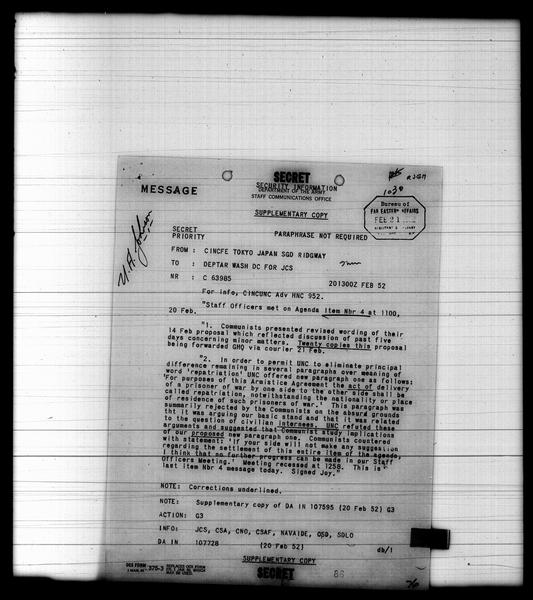 SECRET
SECURITY INFORMATION
DEPARTMENT OF THE ARMY
STAFF COMMUNICATIONS OFFICE
MESSAGE
SUPPLEMENTARY COPY
Bureau of
FAR EASTERN AFFAIRS
FEB 21
SECRET
PRIORITY PARAPHRASE NOT REQUIRED
FROM : CINCFE TOKYO JAPAN SGD RIDGWAY
TO : DEPTAR WASH DC FOR JCS
NR : C 63985 201300Z FEB 52
For info, CINCUNC Adv HNC 952.
"Staff Officers met on Agenda Item Nbr 4 at 1100,
20 Feb.
"1. Communists presented revised wording of their
14 Feb proposal which reflected discussion of past five
days concerning minor matters. Twenty copies this proposal
being forwarded GHQ via courier 21 Feb.
"2. In order to permit UNC to eliminate principal
difference remaining in several paragraphs over meaning of
word 'repatriation' UNC offered new paragraph one as follows:
'For purposes of this Armistice Agreement the act of delivery
of a prisoner of war by one side to the other side shall be
called repatriation, notwithstanding the nationality or place
of residence of such prisoners of war.' This paragraph was
summarily rejected by the Communists on the absurd grounds
tht it was arguing our basic stand and that it was related
to the question of civilian internees. UNC refuted these
arguments and suggested that Communist study implications
of our proposed new paragraph one. Communists countered
with statement: 'if your side will not make any suggestion
regarding the settlement of this entire item of the agenda,
I think that no further progress can be made in our Staff
Officers Meeting.' Meeting recessed at 1258. This is
last item Nbr 4 message today. Signed Joy."
NOTE: Corrections underlined.
NOTE: Supplementary copy of DA IN 107595 (20 Feb 52) G3
ACTION: G3
INFO: JCS, CSA, CNO, CSAF, NAVAIDE, OSD, SDLO
DA IN 107728 (20 Feb 52) db/1
SUPPLEMENTARY COPY
375-3
SECRET
86
76